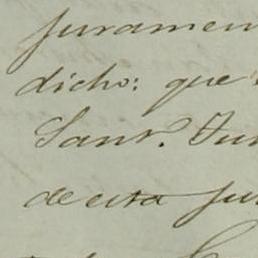 juramen
dicho: que
Sant.
de esta ju